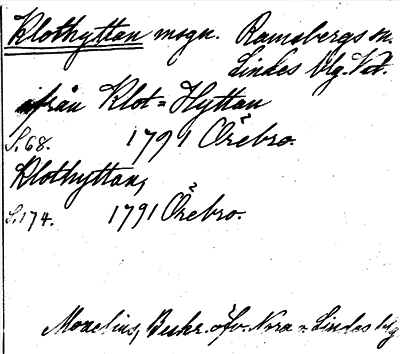 Klothyttan mogn. Ramsbergs sn.
Lindes blg. Vstm.
ifrån Klot=Hyttan
S.68. 1791 Örebro.
Klothyttan,
S.174. 1791 Örebro.
Morelius, Beskr. öfv. Nora o Lindes blg